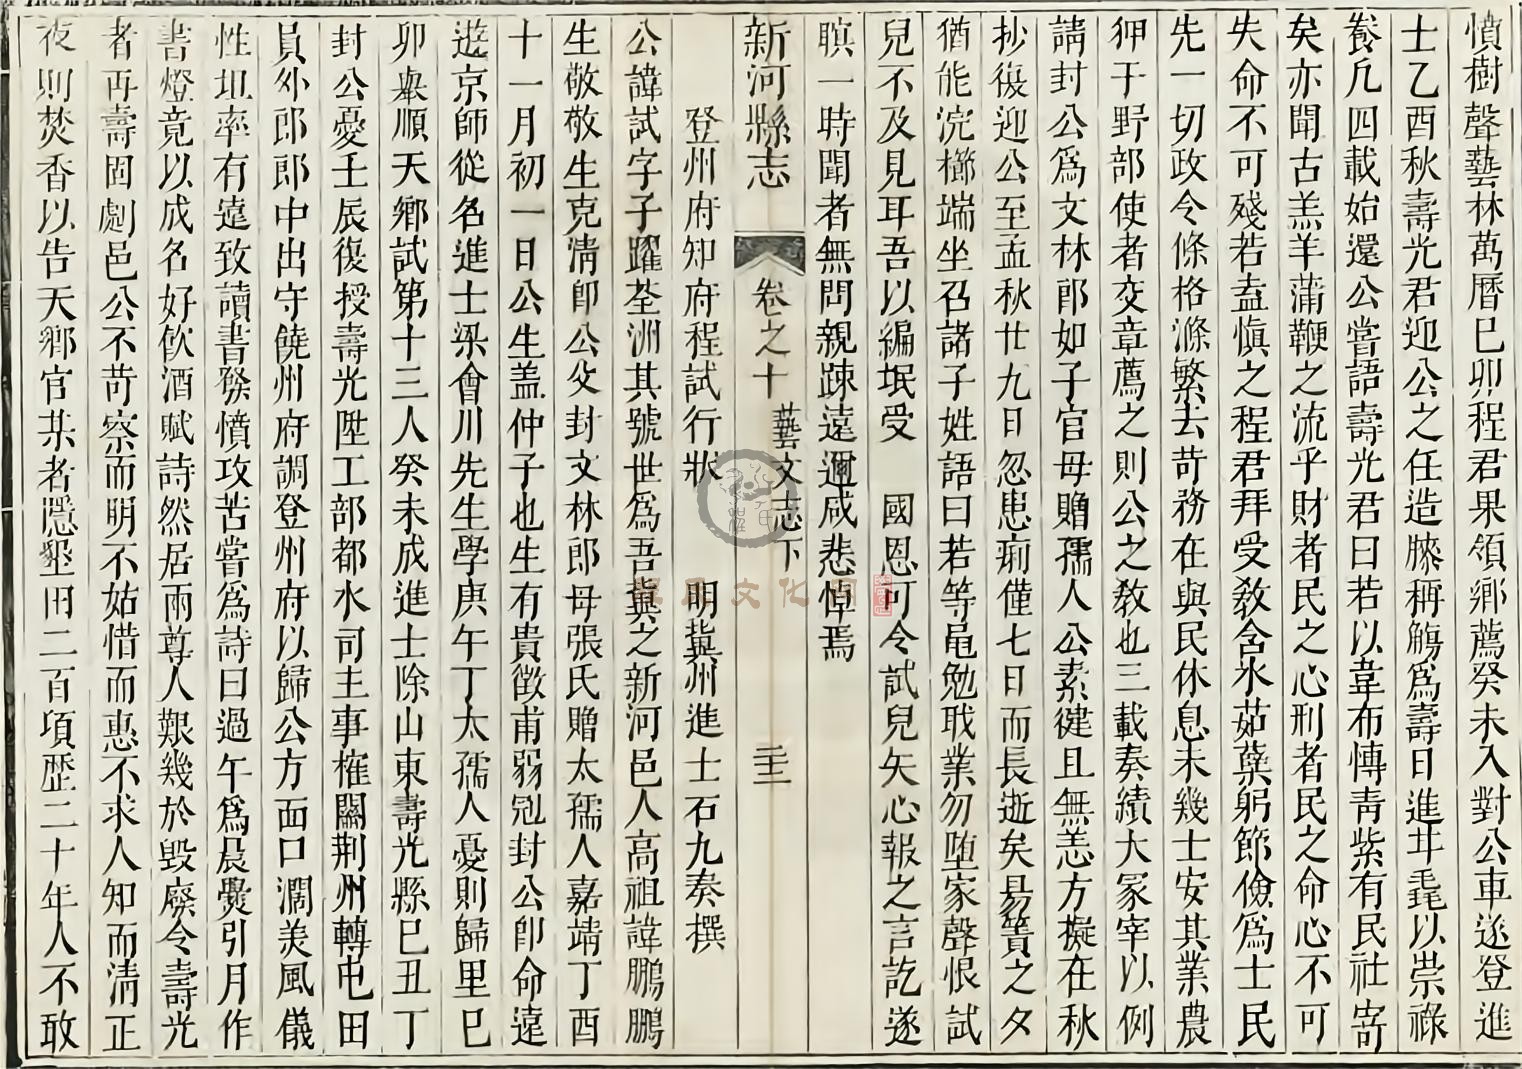 憤樹聲藝林萬曆巳卯程君果領鄉薦癸未入對公車遂登進
士乙酉秋壽光君迎公之任造膝稱觴爲壽日進耳毳以祟祿
養凡四載始還公嘗語壽光君曰若以韋布慱靑紫有民社寄
矣亦聞古羔羊蒲鞭之流乎財者民之心刑者民之命心不可
失命不可殘若盍愼之程君拜受敎含氷茹蘗躬節儉爲士民
先一切政令條格滌繁去苛務在與民休息未幾士安其業農
狎于野部使者交章薦之則公之敎也三載奏績大冢宰以例
請封公爲文林郎如子官母贈孺人公素健且無恙方擬在秋
抄復迎公至孟秋廿九日忽患痢僅七日而長逝矣易簀之夕
猶能浣櫛端坐召諸子姓語曰若等黽勉耿業勿墮家聲恨試
兒不及見耳吾以編氓受 國恩可令試兒矢心報之言訖遂
瞑一時聞者無問親踈遠邇咸悲悼焉
新河縣志 卷之十 藝文志下 三十二
登州府知府程試行狀 明冀州進士石九奏撰
公諱試字子躍荃洲其號世爲吾冀之新河邑人高祖諱鵬鵬
生敬敬生克淸卽公父封文林郎母張氏贈太孺人嘉靖丁酉
十一月初一日公生盖仲子也生有貴徵甫弱冠封公卽命遠
遊京師從名進士梁會川先生學庚午丁太孺人憂則歸里巳
卯舉順天鄉試第十三人癸未成進士除山東壽光縣巳丑丁
封公憂壬辰復授壽光陞工部都水司主事榷關荆州轉屯田
員外郎郎中出守饒州府調登州府以歸公方面口濶美風儀
性坦率有遠致讀書發憤攻苦嘗爲詩曰過午爲晨爨引月作
書燈竟以成名好飮酒賦詩然居兩尊人艱幾於毀廢令壽光
者再壽固劇邑公不苛察而明不姑惜而惠不求人知而淸正
夜則焚香以告天鄉官某者隱墾田二百項歷二十年人不敢